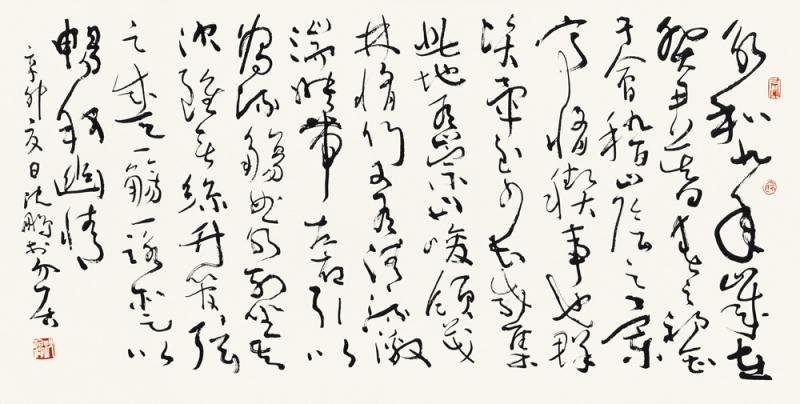 永和九年歲在
癸丑暮春之初會
于會稽山陰之蘭
亭脩禊事也群
賢畢至少長咸集
此地有崇山峻領茂
林脩竹又有清流激
湍暎帶左右引以
為流觴曲水列坐其
次雖無絲竹管弦
之盛一觴一詠亦足以
暢敘幽情
辛卯夏日沈鵬於介居